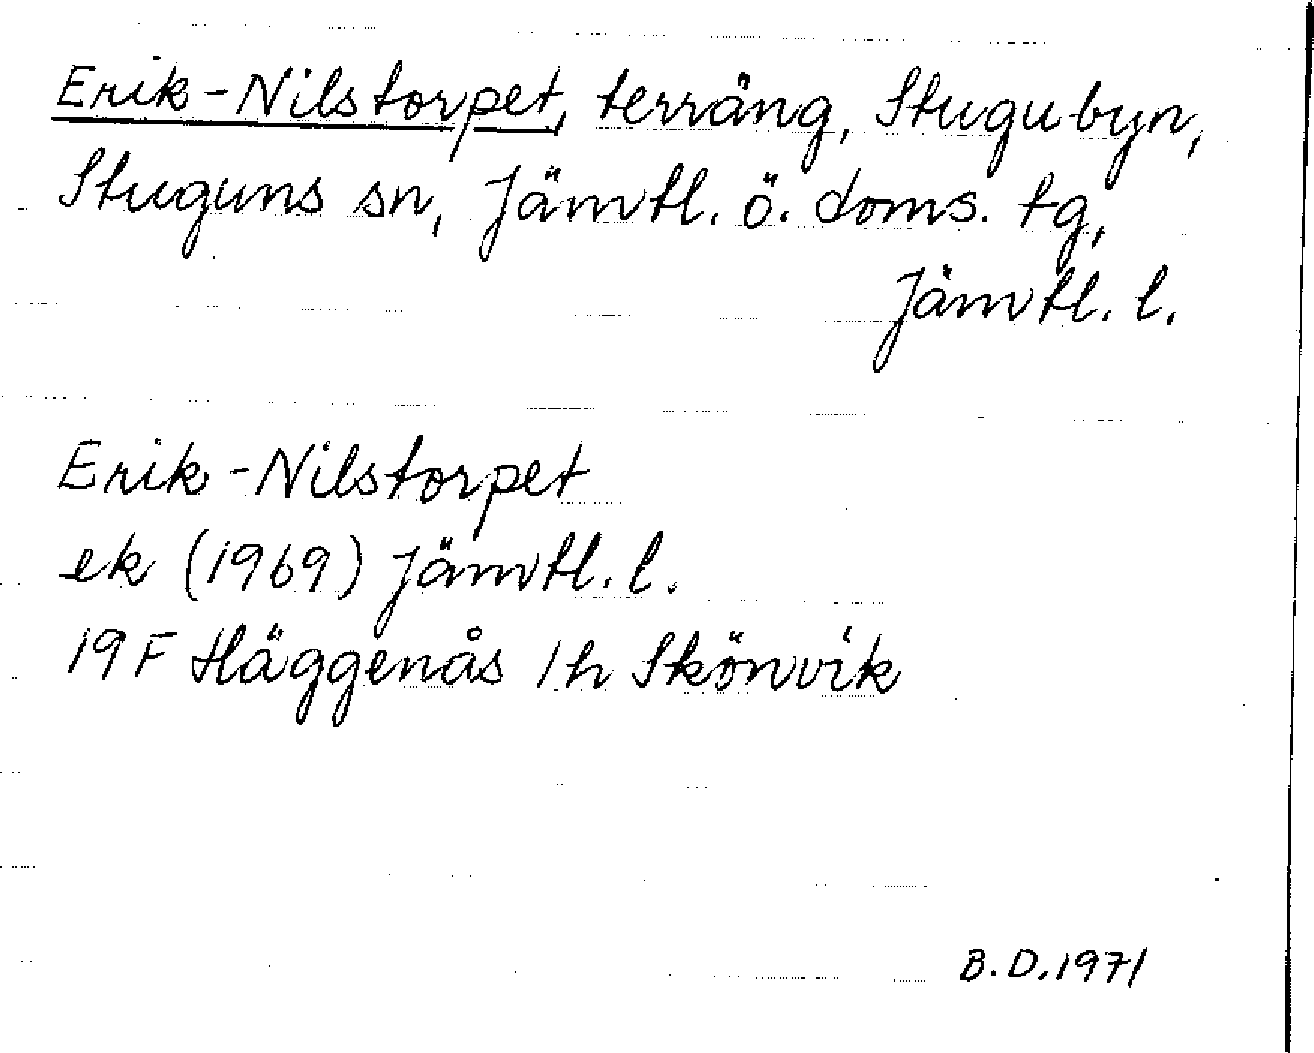 Erik-Nilstorpet, terräng, Stugubyn,
Stuguns sn, Jämtl. ö. doms. tg,
Jämtl. l.
Erik-Nilstorpet
ek (1969) Jämtl. l.
19 F Häggenås 1 h Skönvik
B.D. 1971